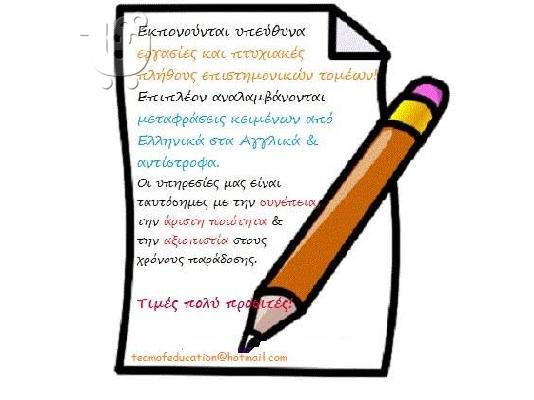 Εκπονούνται υπεύθυνα
εργασίες και πτυχιακές
πλήθους επιστημονικών τομέων!
Επιπλέον αναλαμβάνονται
μεταφράσεις κειμένων από
Ελληνικά στα Αγγλικά &
αντίστροφα.
Οι υπηρεσίες μας είναι
ταυτόσημες με την συνέπεια,
την άριστη ποιότητα &
την αξιοπιστία στους
χρόνους παράδοσης.
Τιμές πολύ προσιτές!
tecmofeducation@hotmail.com